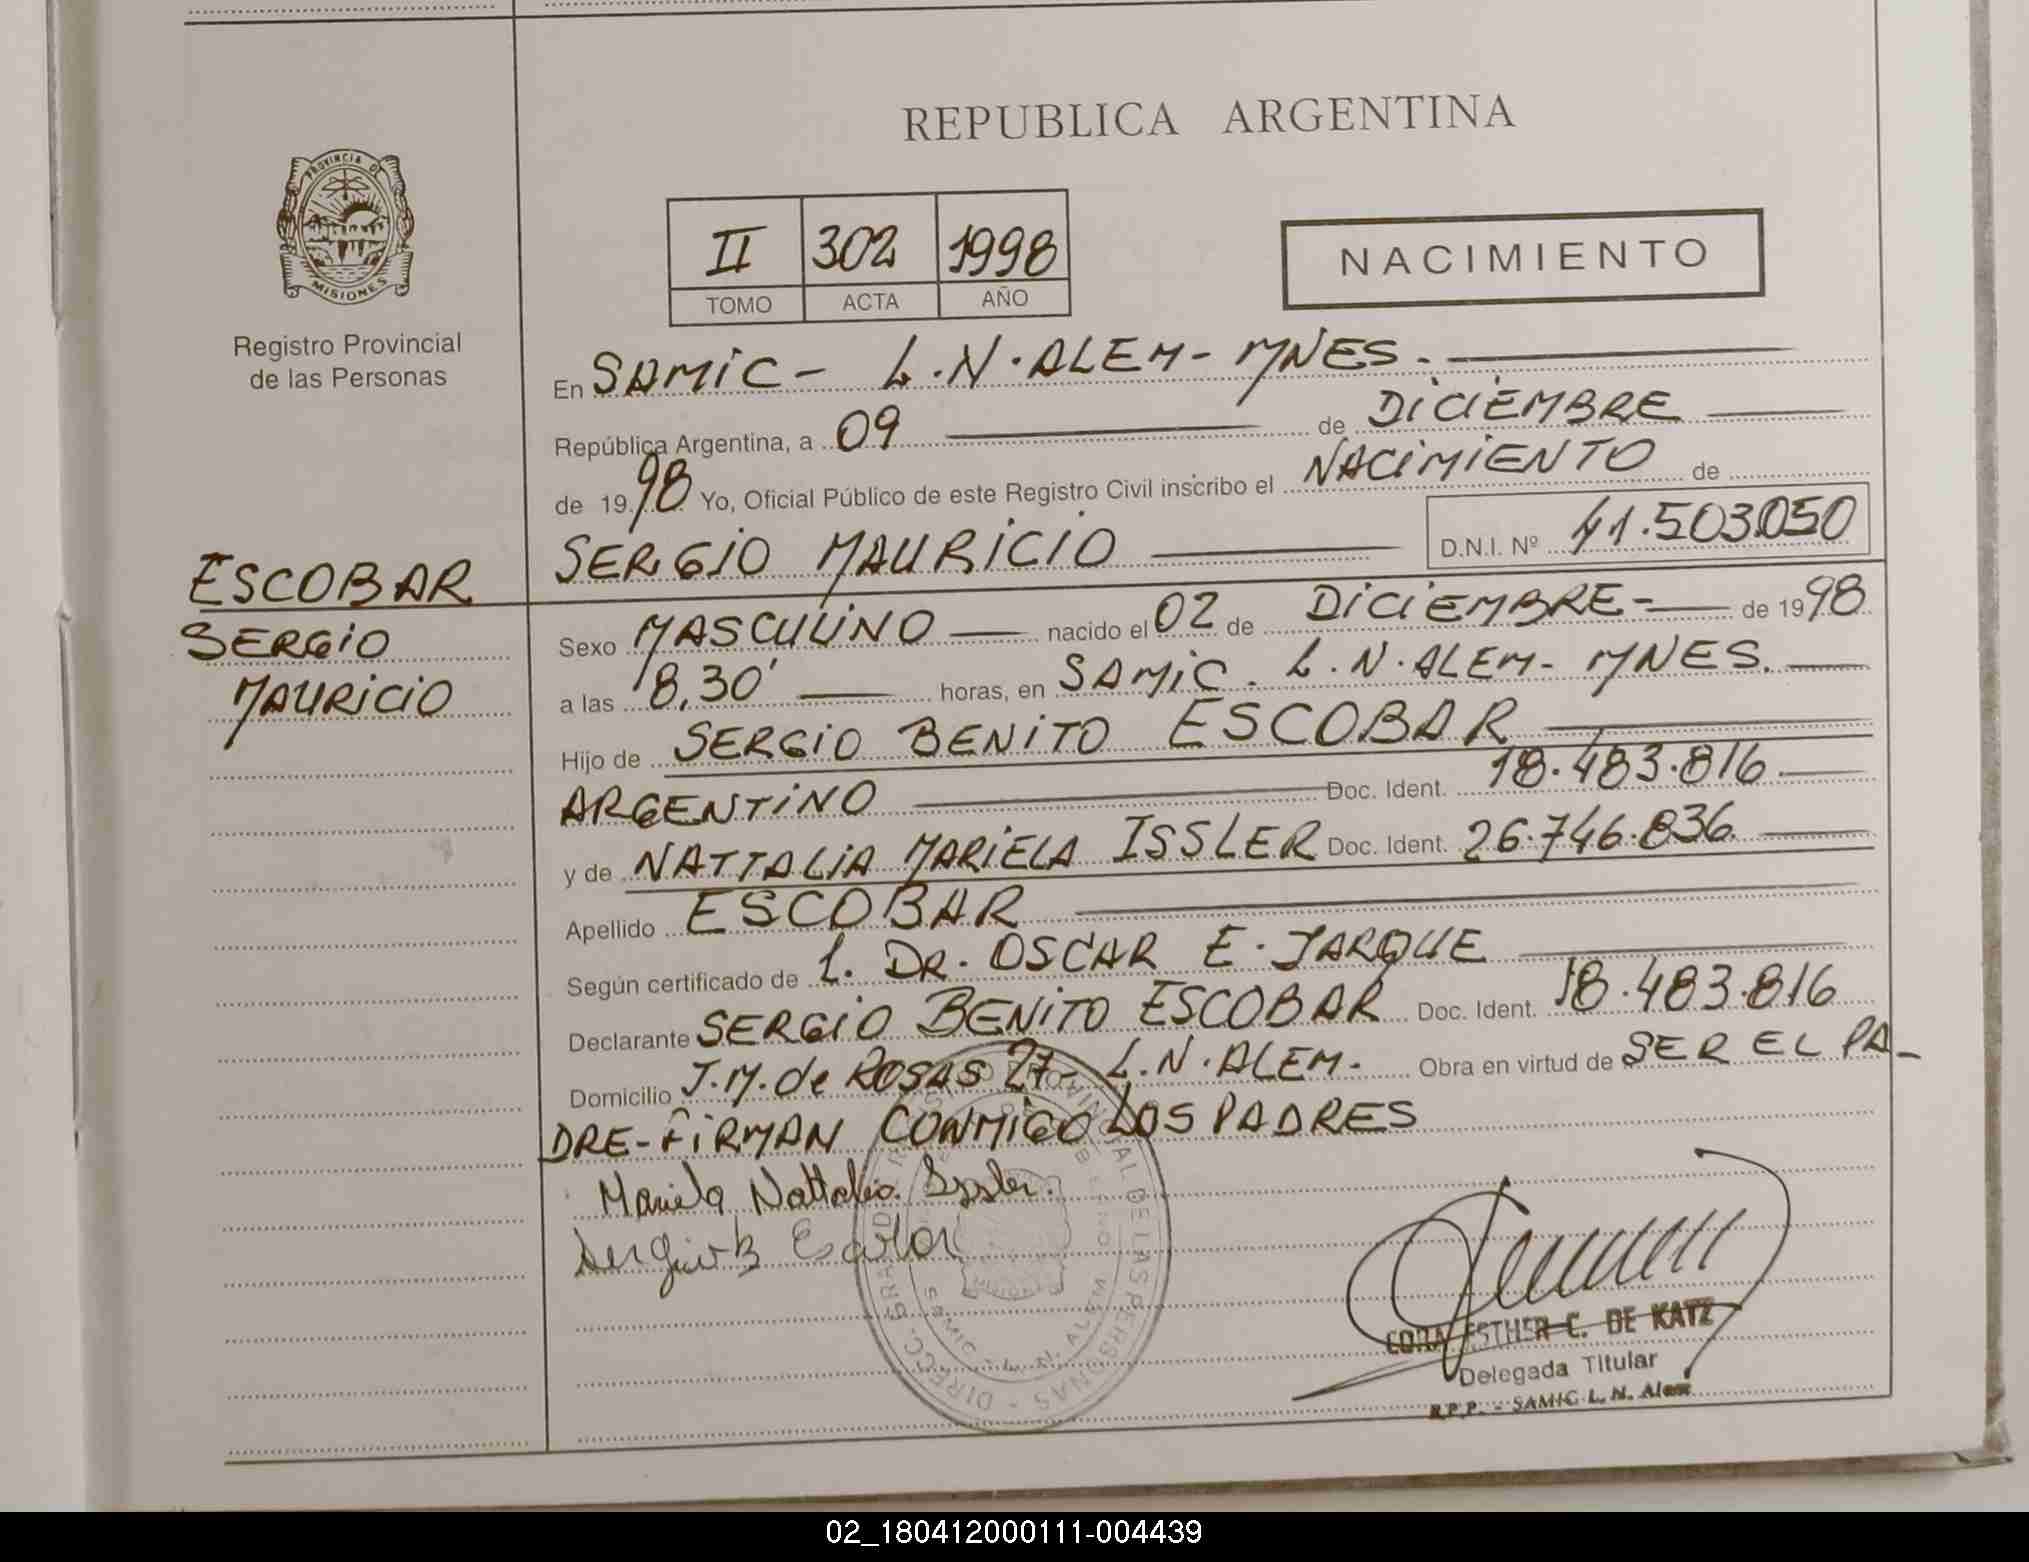 REPUBLICA ARGENTINA
PROVINCIA DE
MISIONES
Registro Provincial
de las Personas
II 302 1998
TOMO ACTA AÑO
NACIMIENTO
En SAMIC - L.N.ALEM - MNES.
República Argentina, a 09 de DICIEMBRE
de 1998 Yo, Oficial Público de este Registro Civil inscribo el NACIMIENTO de
SERGIO MAURICIO D.N.I. Nº 41.503.050
ESCOBAR
SERGIO
MAURICIO
Sexo MASCULINO nacido el 02 de DICIEMBRE - de 1998
a las 8,30' horas, en SAMIC. L.N.ALEM - MNES.
Hijo de SERGIO BENITO ESCOBAR
ARGENTINO Doc. Ident. 18.483.816
y de NATTALIA MARIELA ISSLER Doc. Ident. 26.746.836
Apellido ESCOBAR
Según certificado de L. DR. OSCAR E. JARQUE
Declarante SERGIO BENITO ESCOBAR Doc. Ident. 18.483.816
Domicilio J.M. de ROSAS 27 - L.N.ALEM. Obra en virtud de SER EL PA-
DRE - FIRMAN CONMIGO LOS PADRES
Mariela Nattalia Issler.
Escobar
PROVINCIAL DE LAS PERSONAS - DIRECC
SAMIC - L. N. ALEM
CORA ESTHER C. DE KATZ
Delegada Titular
R.P.P. - SAMIC L. N. Alem
02_180412000111-004439